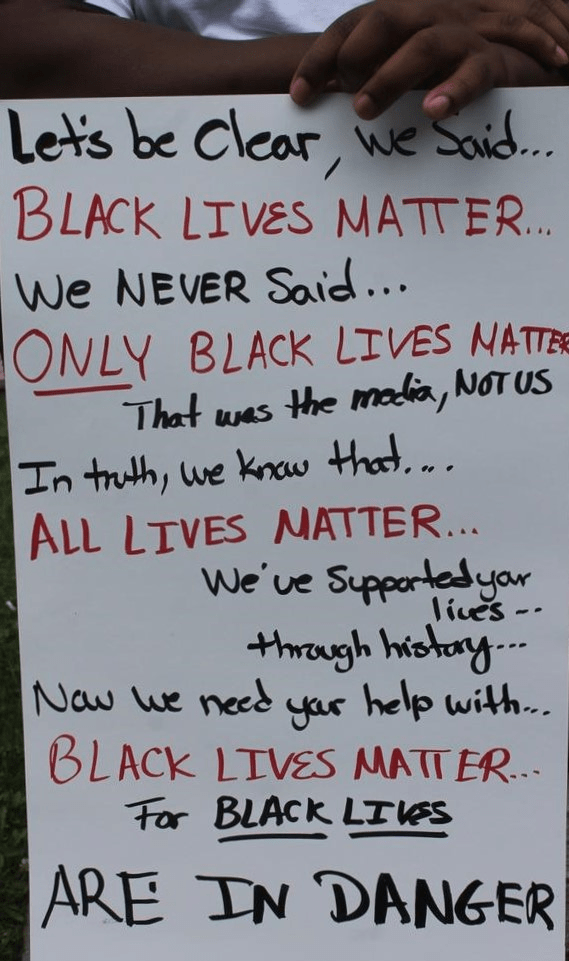 Let's be Clear, we Said...
BLACK LIVES MATTER...
We NEVER Said...
ONLY BLACK LIVES MATTER
That was the media, NOT US
In truth, we know that....
ALL LIVES MATTER...
We've Supported your
lives --
through history...
Now we need your help with...
BLACK LIVES MATTER...
For BLACK LIVES
ARE IN DANGER